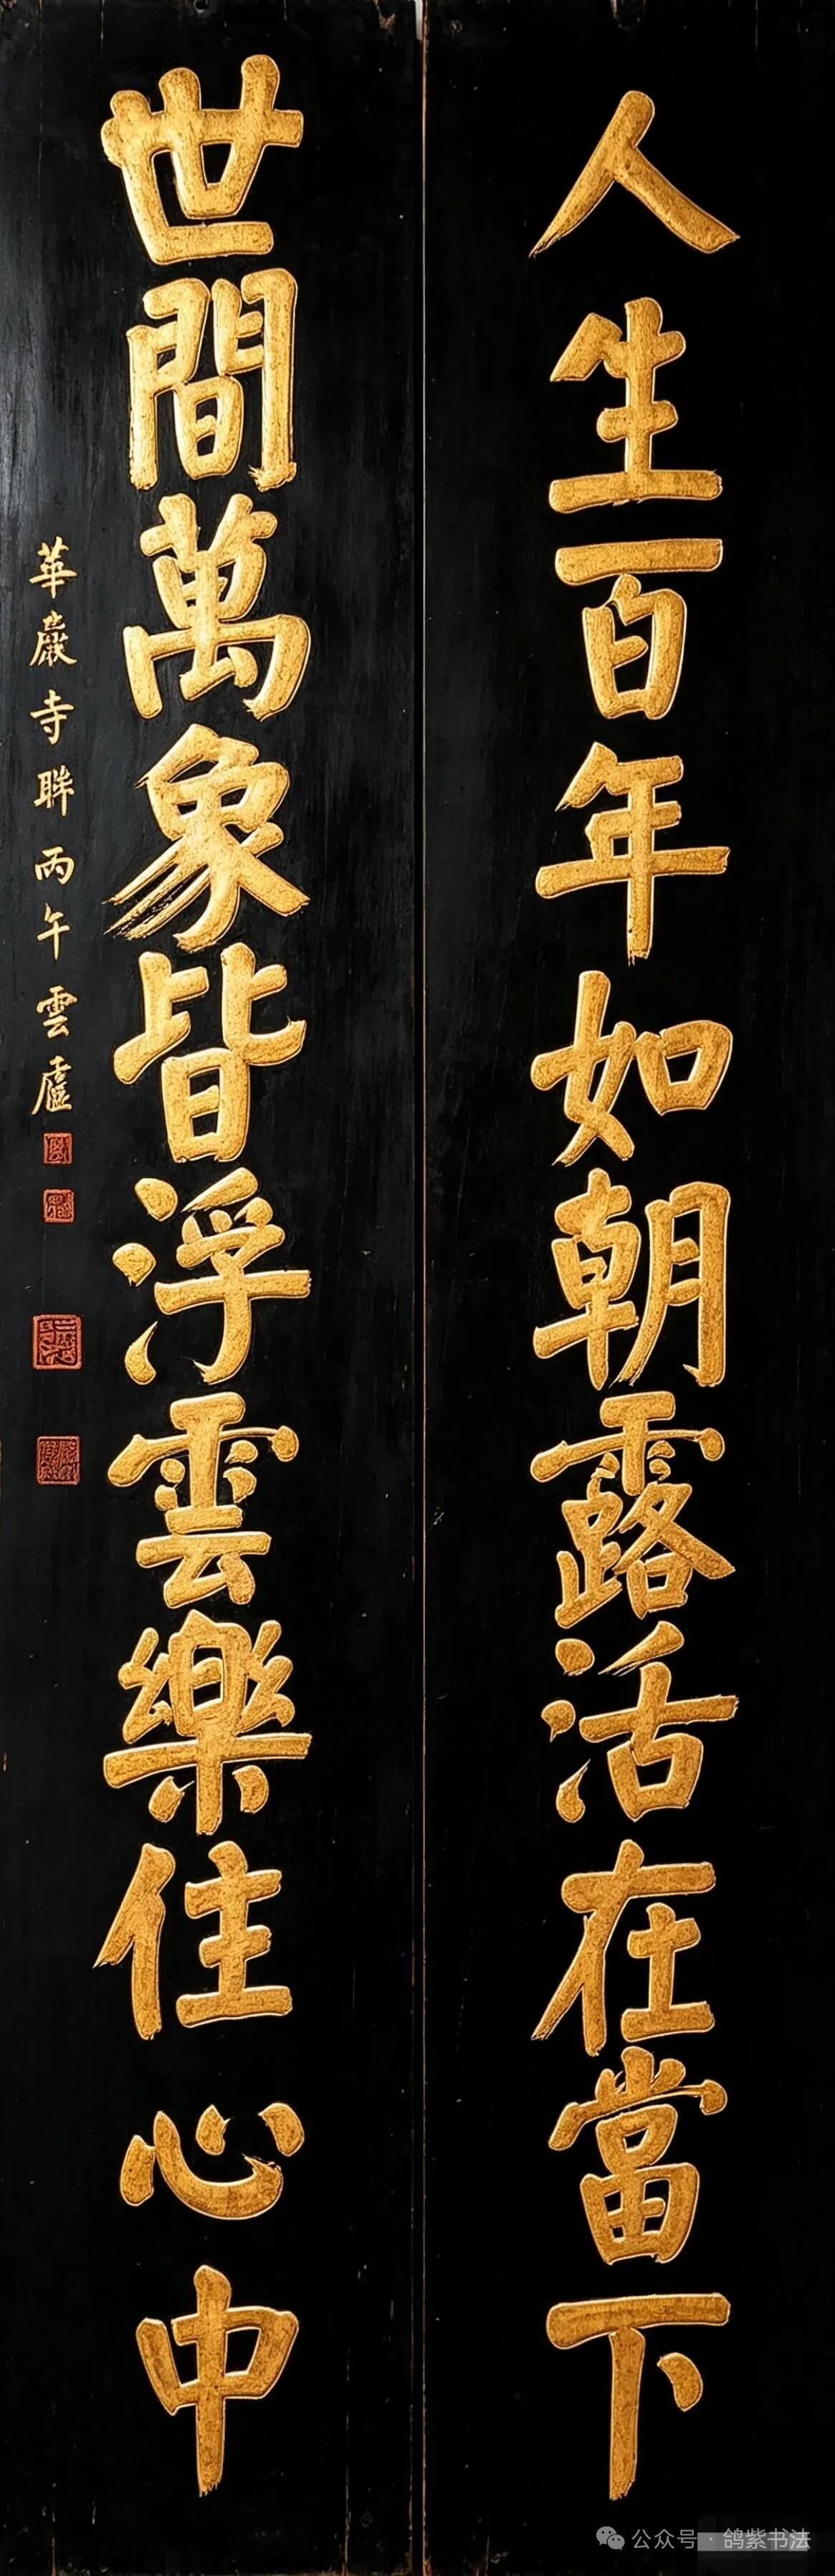 人生百年如朝露活在當下
世間萬象皆浮雲樂住心中
華嚴寺联丙午雲廬
公众号·鸽紫书法